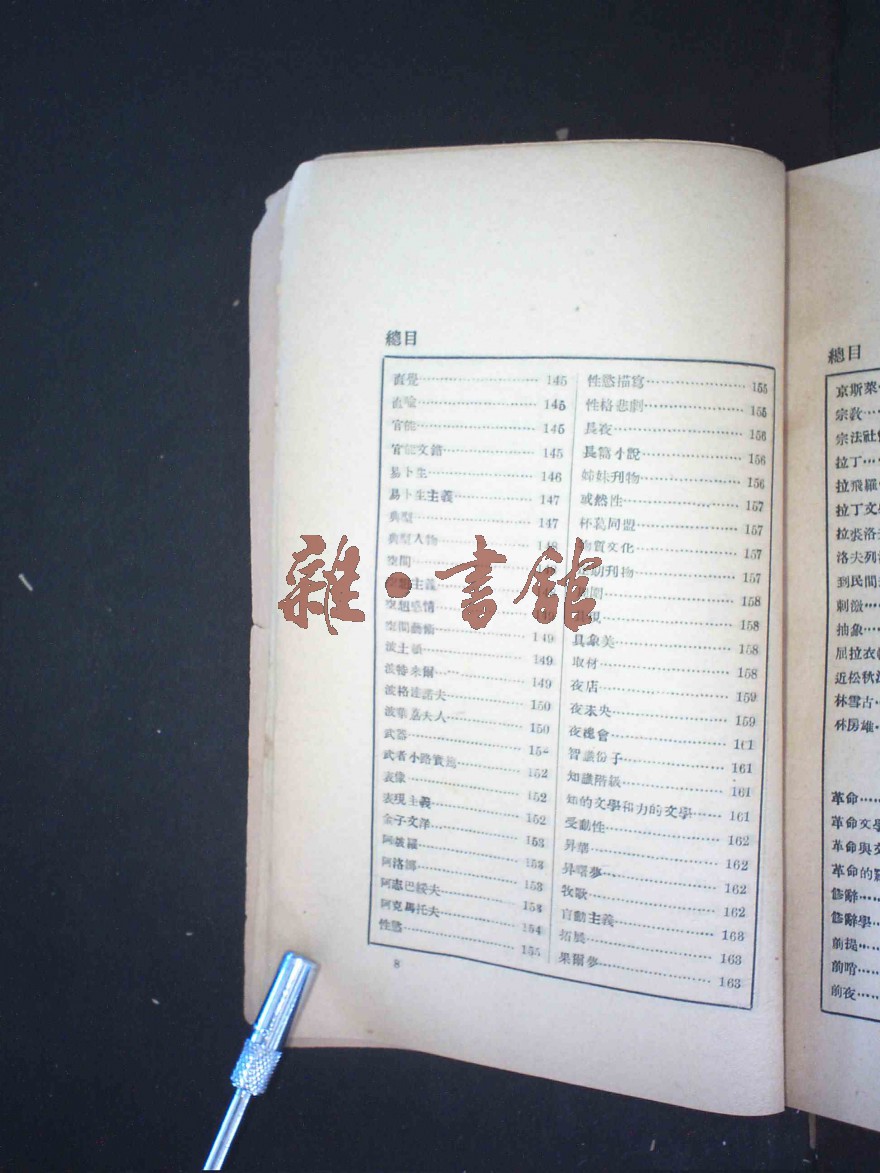 總目
直覺 145
直喩 145
官能 145
官能交錯 145
易卜生 146
易卜生主義 147
典型 147
典型人物 148
空間
主義
空想感情 149
空間藝術 149
波士頓 149
波特來爾 149
波格達諾夫 150
波華荔夫人 150
武器
武者小路實篤 152
表像 152
表現主義 152
金子文洋 153
阿彼羅 153
阿洛 153
阿志巴綏夫 153
阿克馬托夫 154
性慾 155
性慾描寫 155
性格悲劇 155
長夜 156
長篇小說 156
姊妹刊物 156
或然性 157
杯葛同盟 157
物質文化 157
刊物 157
158
158
具象美 158
取材 158
夜店 159
夜未央 159
夜魂會 161
智識份子 161
知識階級 161
知的文學和力的文學 161
受動性 162
昇華 162
昇曙夢 162
牧歌 162
盲動主義 163
拓展 163
果爾夢 163
8
雜·書館
總目
京斯萊
宗教
宗法社
拉丁
拉飛羅
拉丁文
拉裘洛
洛夫列
到民間
刺激
抽象
屈拉衣
近松秋
林雪古
林房雄
革命
革命文學
革命與文
革命的
修辭
修辭學
前提
前哨
前夜